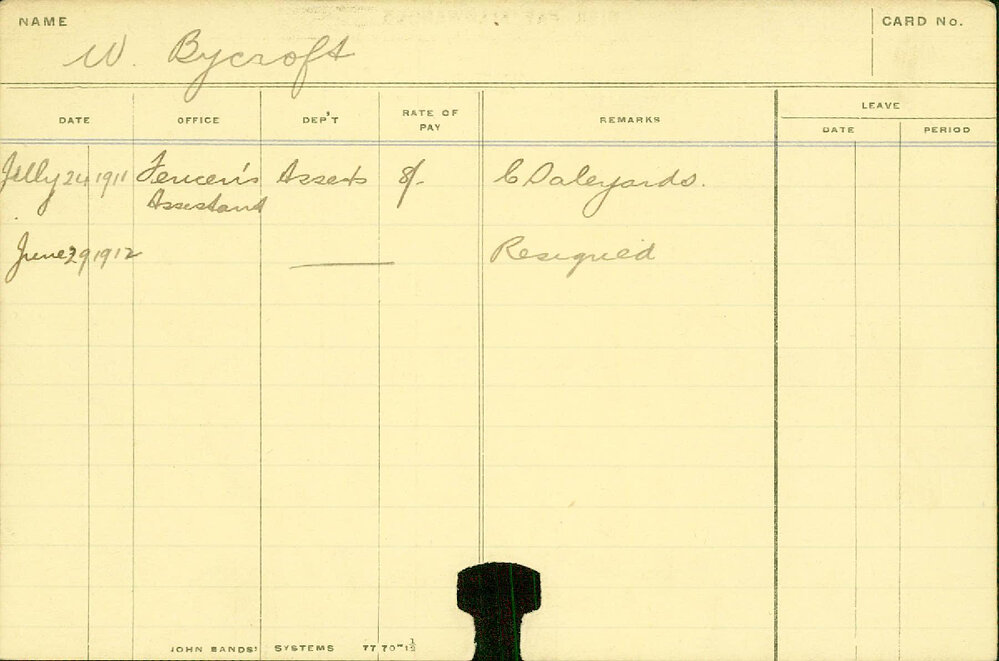 NAME
CARD No.
W. Bycroft
LEAVE
DATE OFFICE DEP'T RATE OF PAY REMARKS DATE PERIOD
July 24 1911 Fencer's Assets 8/- C Saleyards.
Assistant
June 29 1912 Resigned
JOHN SANDS' SYSTEMS 77 70